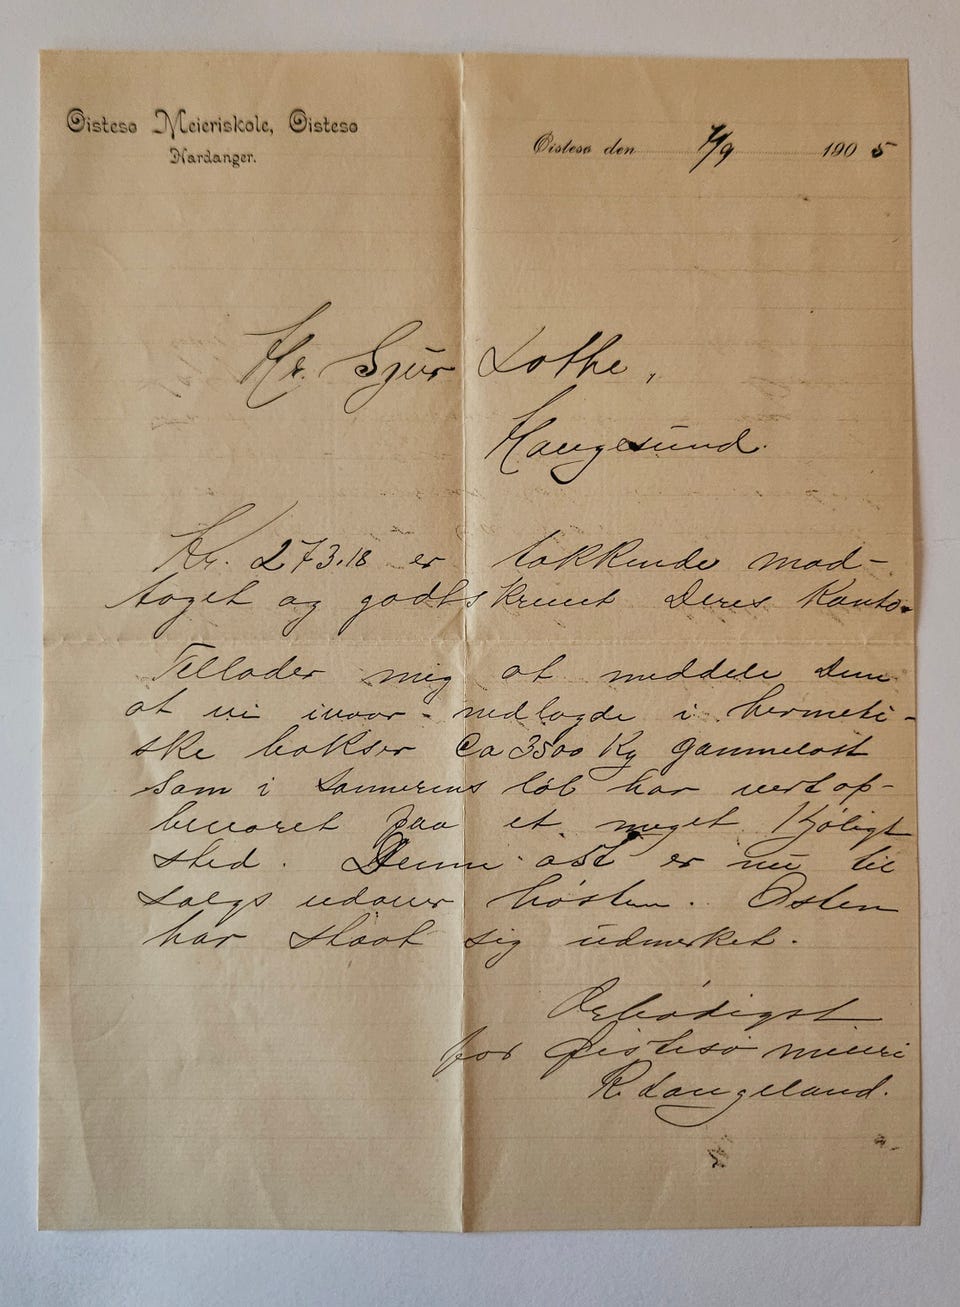 Øistesø Meieriskole, Øistesø
Hardanger.
Øistesø den 7/9 1905
Hr. Sjur Lothe,
Haugesund.
Kr. 273.18 er takkende mod-
taget og godtskrevet Deres Konto.
Tillader mig at meddele Dem
at vi ivaar nedlagde i hermeti-
ske bokser Ca 3500 Kg gammelost
som i sommerens løb har vert op-
bevaret paa et meget Kjøligt
sted. Denne ost er nu til
salgs udover høsten. Osten
har staat sig udmerket.
Ærbødigst
for Øistesø meieri
R. Langeland.